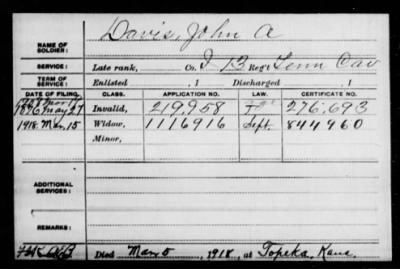 NAME OF SOLDIER: Davis, John A
SERVICE: Late rank, Co. I 13 Reg't Tenn Cav
TERM OF SERVICE: Enlisted , 1 Discharged , 1
DATE OF FILING. CLASS. APPLICATION NO. LAW. CERTIFICATE NO.
1876 May 27 Invalid, 219,958 276,693
1918. Mar. 15 Widow, 1116916 Sept. 844960
Minor,
ADDITIONAL SERVICES:
REMARKS:
Died Mar. 5, 1918, at Topeka, Kans.